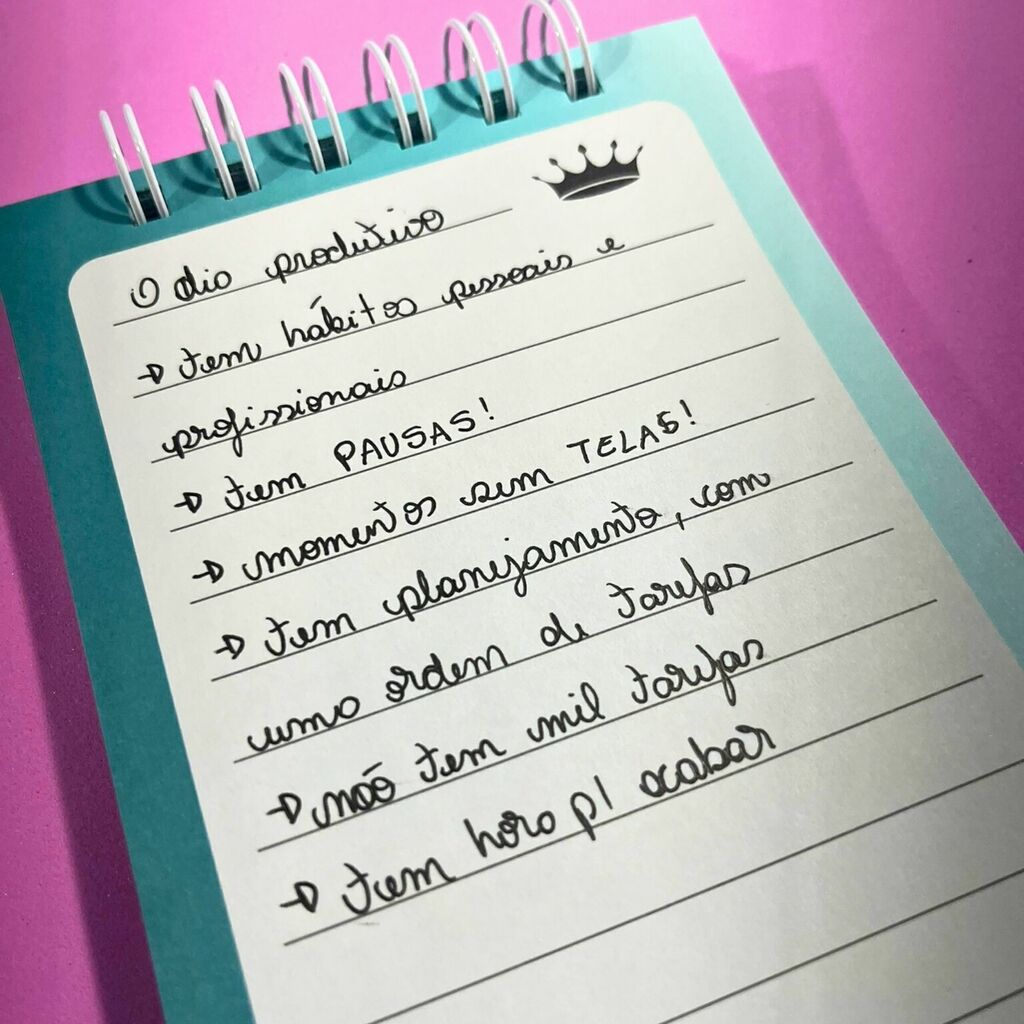 O dia produtivo
→ tem hábitos pessoais e
profissionais
→ tem PAUSAS!
→ momentos sem TELAS!
→ tem planejamento, com
uma ordem de tarefas
→ não tem mil tarefas
→ tem hora p/ acabar